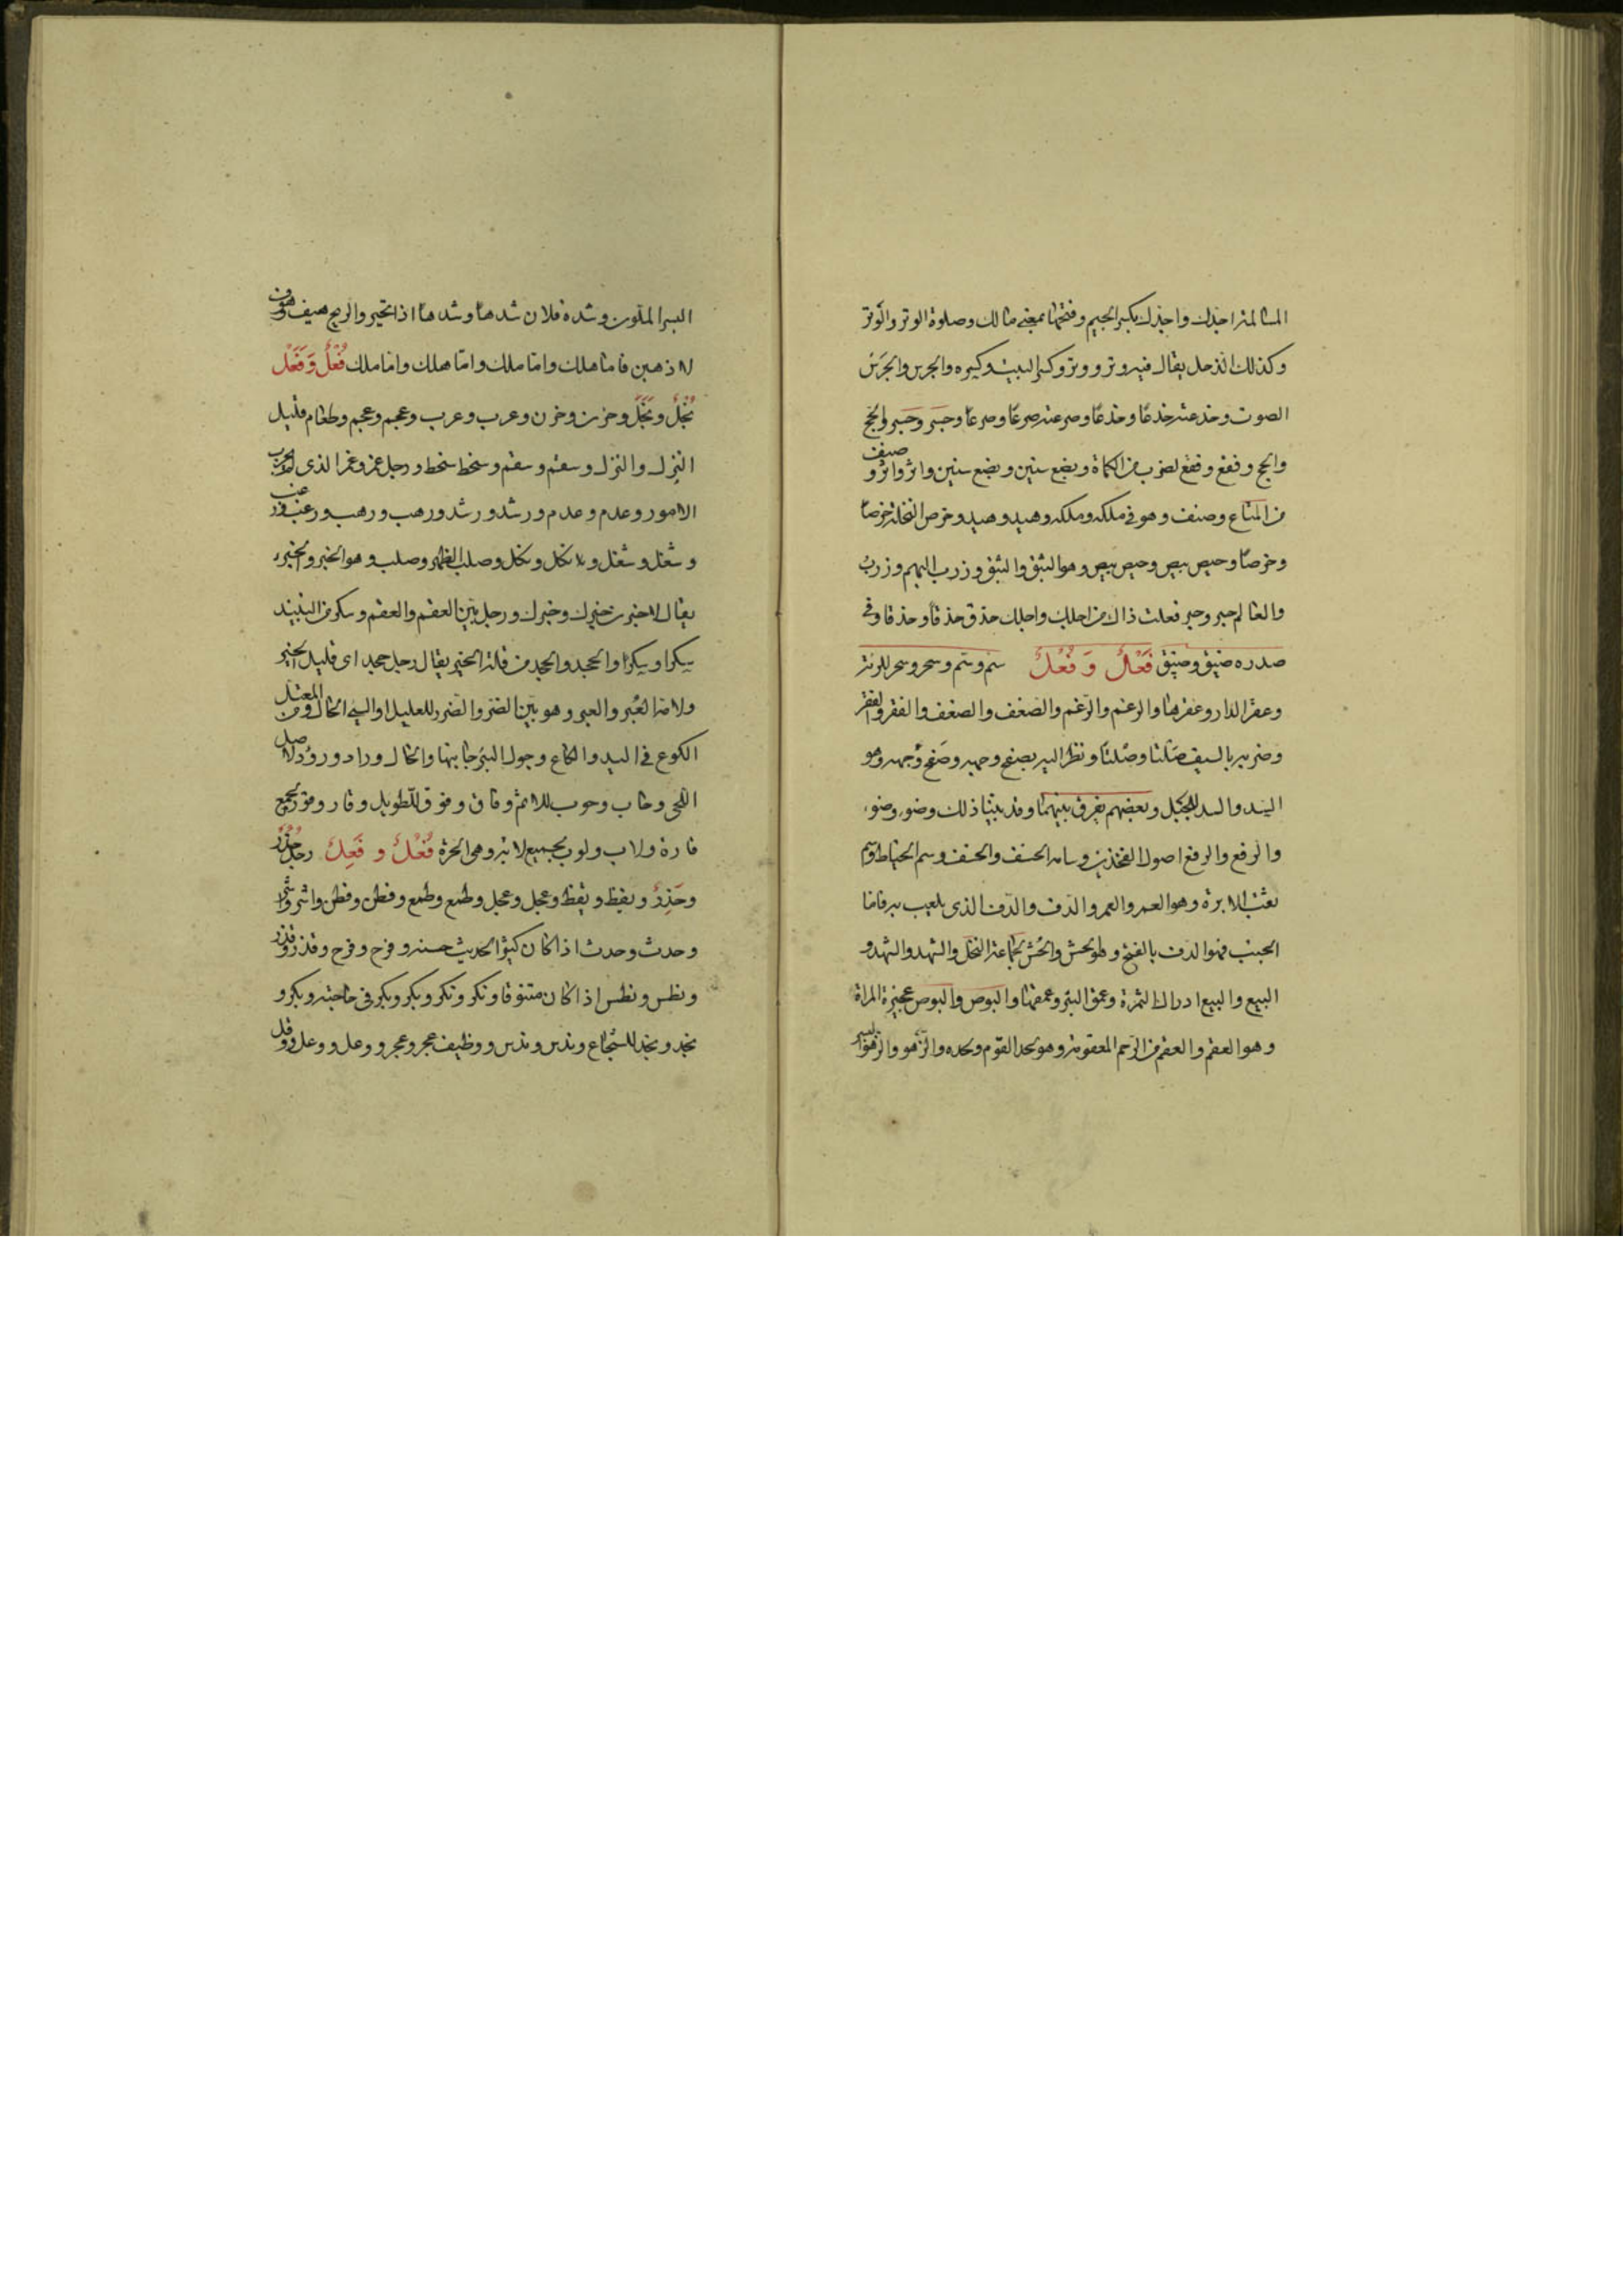 المسالمة اجدك واجدك بكسر الجيم وفتحها بمعنى مالك وصلوة الوتر والوتر
وكذلك الذحل يقال فيه وتر ووتر وكسر البيت وكسره والجرس والجرس
الصوت وخدعته خدعا وخدعا وصرعته صرعا وصرعا وحبر وحبر والحج
والحج وفقع وفقع لضرب من الكماة وبضع سنين وبضع سنين واثر واثر وصنف
من المتاع وصنف وهو فى ملكه وملكه وهيد وهيد وخرص النخلة خرصا
وخرصا وحيص بيص وحيص بيص وهو البثق والبثق وزرب البهم وزرب
والعالم حبر وحبر فعلت ذاك من اجلك واجلك حذق حذقا وحذقا وفى
صدره ضيق وضيق فَعْلٌ وَ فُعْلٌ سم وسم وسحر وسحر للرئة
وعقر الدار وعقرها والرغم والرغم والضعف والضعف والفقر والفقر
وضربه بالسيف صلتا وصلتا ونظر اليه بصفح وجهه وصفح وجهه وهو
السد والسد للجبل وبعضهم يفرق بينهما وقد بينا ذلك وضوء وضوء
والرفع والرفغ اصول الفخذين وسامه الخسف والخسف وسم الخياط وسم
ثقب الابرة وهو العمر والعمر والدف والدف الذى يلعب به فاما
الجنب فهو الدف بالفتح وهو الحش والحش لجماعة النخل والشهد والشهد و
الينع والينع ادراك الثمرة وعمق البئر وعمقها والبوص والبوص عجيزة المراة
وهو العقم والعقم من الرحم المعقومة وهو لحد القوم ولحده والزهو والزهو
البسر الملون وشده فلان شدها وشدها اذا تحير والريح هيف وهوف
لاذهبن فاما هلك واما ملك واما هلك واما ملك فُعْلٌ وَ فَعَل
بُخْلٌ وبَخَلٌ وحزن وحزن وعرب وعرب وعجم وعجم وطعام قليل
النزل والنزل وسقم وسقم وسخط وسخط ورجل غمر وغمر الذى لم يجرب
الامور وعدم وعدم ورشد ورشد ورهب ورهب ورغب ورغب
وشغل وشغل وثكل وثكل وصلب الظهر وصلب وهو الخبر والخبر
يقال لاخبرن خبرك وخبرك ورجل بين العقم والعقم وسكر من النبيذ
سكرا وسكرا والجحد والجحد من قلة الخير يقال رجل جحد اى قليل الخير
ولامه العبر والعبر وهو بين الضر والضرر للعليل او السيئ الحال ومن المعتل
الكوع فى اليد والكاع وجول البئر جانبها والجال وراد ورود لاصل
اللحى وحاب وحوب للاثم وقاق وقوق للطويل وقار وقور لجميع
قارة ولاب ولوب لجميع لابة وهى الحرة فُعُلٌ و فَعِلٌ رجل حذر
وحَذِرٌ ويقظ ويقظ وعجل وعجل وطمع وطمع وفطن وفطن واشر واشر
وحدث وحدث اذا كان كثير الحديث حسنه وفرح وفرح وقذر وقذر
ونطس ونطس اذا كان متنوقا ونكر ونكر وبكر وبكر فى حاجته وبكر و
نجد ونجد للشجاع وندس وندس ووظيف عجر وعجر ووعل ووعل ووقل